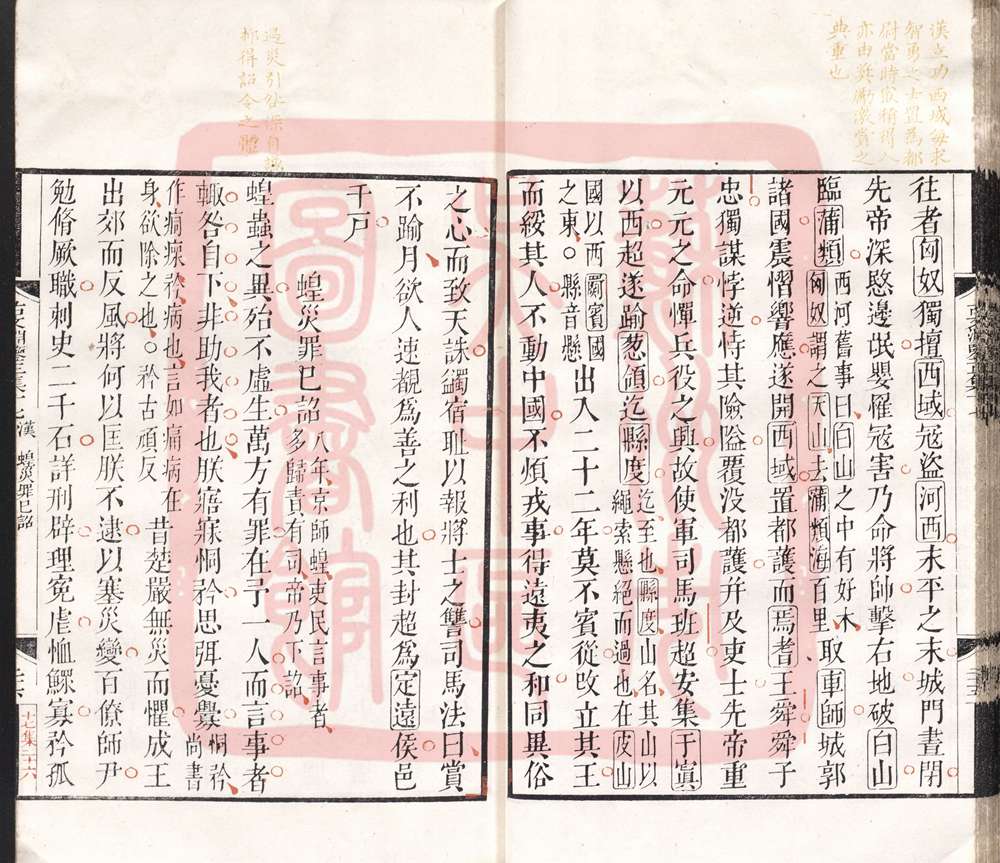 漢立功西域每求
智勇之士置為都
尉當時最稱得人
亦由獎勵激賞之
典重也
往者匈奴獨擅西域寇盜河西永平之末城門晝閉
先帝深愍邊氓嬰罹寇害乃命將帥擊右地破白山
臨蒲類西河舊事曰白山之中有好木匈奴謂之天山去蒲類海百里取車師城郭
諸國震慴響應遂開西域置都護而焉耆王舜舜子
忠獨謀悖逆恃其險隘覆没都護并及吏士先帝重
元元之命憚兵役之興故使軍司馬班超安集于寘
以西超遂踰葱領迄縣度迄至也縣度山名其山以繩索懸絕而過也在皮山
國以西罽賓國之東○縣音懸出入二十二年莫不賓從改立其王
而綏其人不動中國不煩戎事得遠夷之和同異俗
遇災引咎
都得詔令之體
之心而致天誅蠲宿耻以報將士之讐司馬法曰賞
不踰月欲人速覩爲善之利也其封超爲定遠侯邑
千戸
蝗災罪巳詔八年京師蝗吏民言事者多歸責有司帝乃下詔
蝗蟲之異殆不虛生萬方有罪在予一人而言事者
輙咎自下非助我者也朕寤寐恫矜思弭憂釁恫矜尚書
作痌瘝矜病也言如痛病在身欲除之也○矜古頑反昔楚嚴無災而懼成王
出郊而反風將何以匡朕不逮以塞災變百僚師尹
勉脩厥職刺史二千石詳刑辟理寃虐恤鰥寡矜孤
漢 蝗災罪巳詔